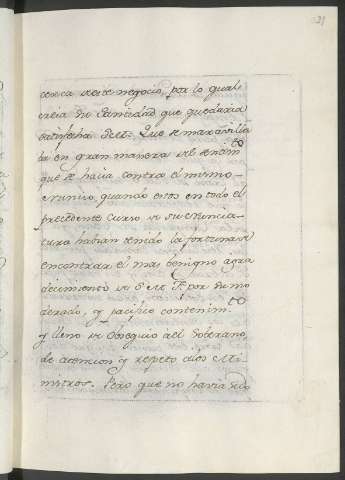 31
cerca de este negocio, por lo qual
creia Su Santidad que quedaria
satisfecha de el. Que se maravilla
ba en gran manera del sentim.to
que se hacia contra el mismo
Nuncio, quando estos en todo el
precedente curso de su Nuncia
tura habian tenido la fortuna de
encontrar el mas benigno agra
decimiento de S. M. F. por su mo
derado, y pacifico contenim.to
y lleno de obsequio al Soberano,
de atencion y respeto a los Mi
nistros. Pero que no havia sido